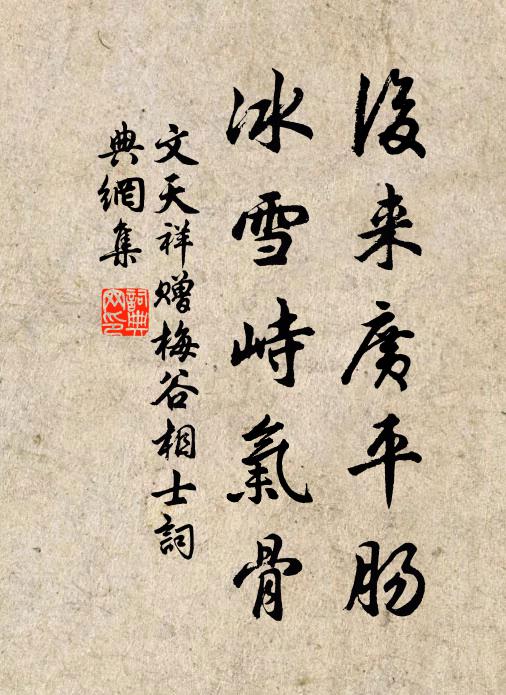 後来廣平肠
冰雪峙氣骨
文天祥赠梅谷相士詞
典網集
詞典
网印